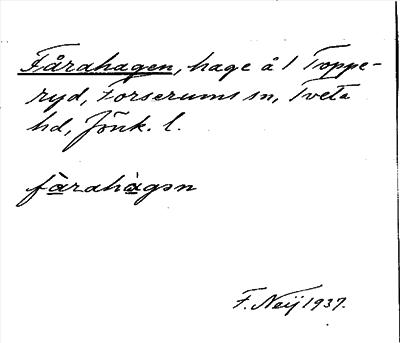 Fårahagen, hage å 1 Toppe-
ryd, Forserums sn, Tveta
hd, Jönk. l.
fàrahàgən
F. Neij 1937.